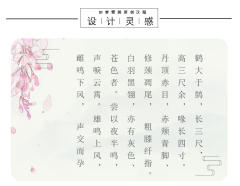 设计灵感
鹤大于鹄,长三尺,
高三尺余,喙长四寸,
丹顶赤目,赤颊青脚,
修颈凋尾,粗膝纤指。
白羽黑翎,亦有灰色、
苍色者。尝以夜半鸣,
声唳云霄。雄鸣上风,
雌鸣下风,声交而孕